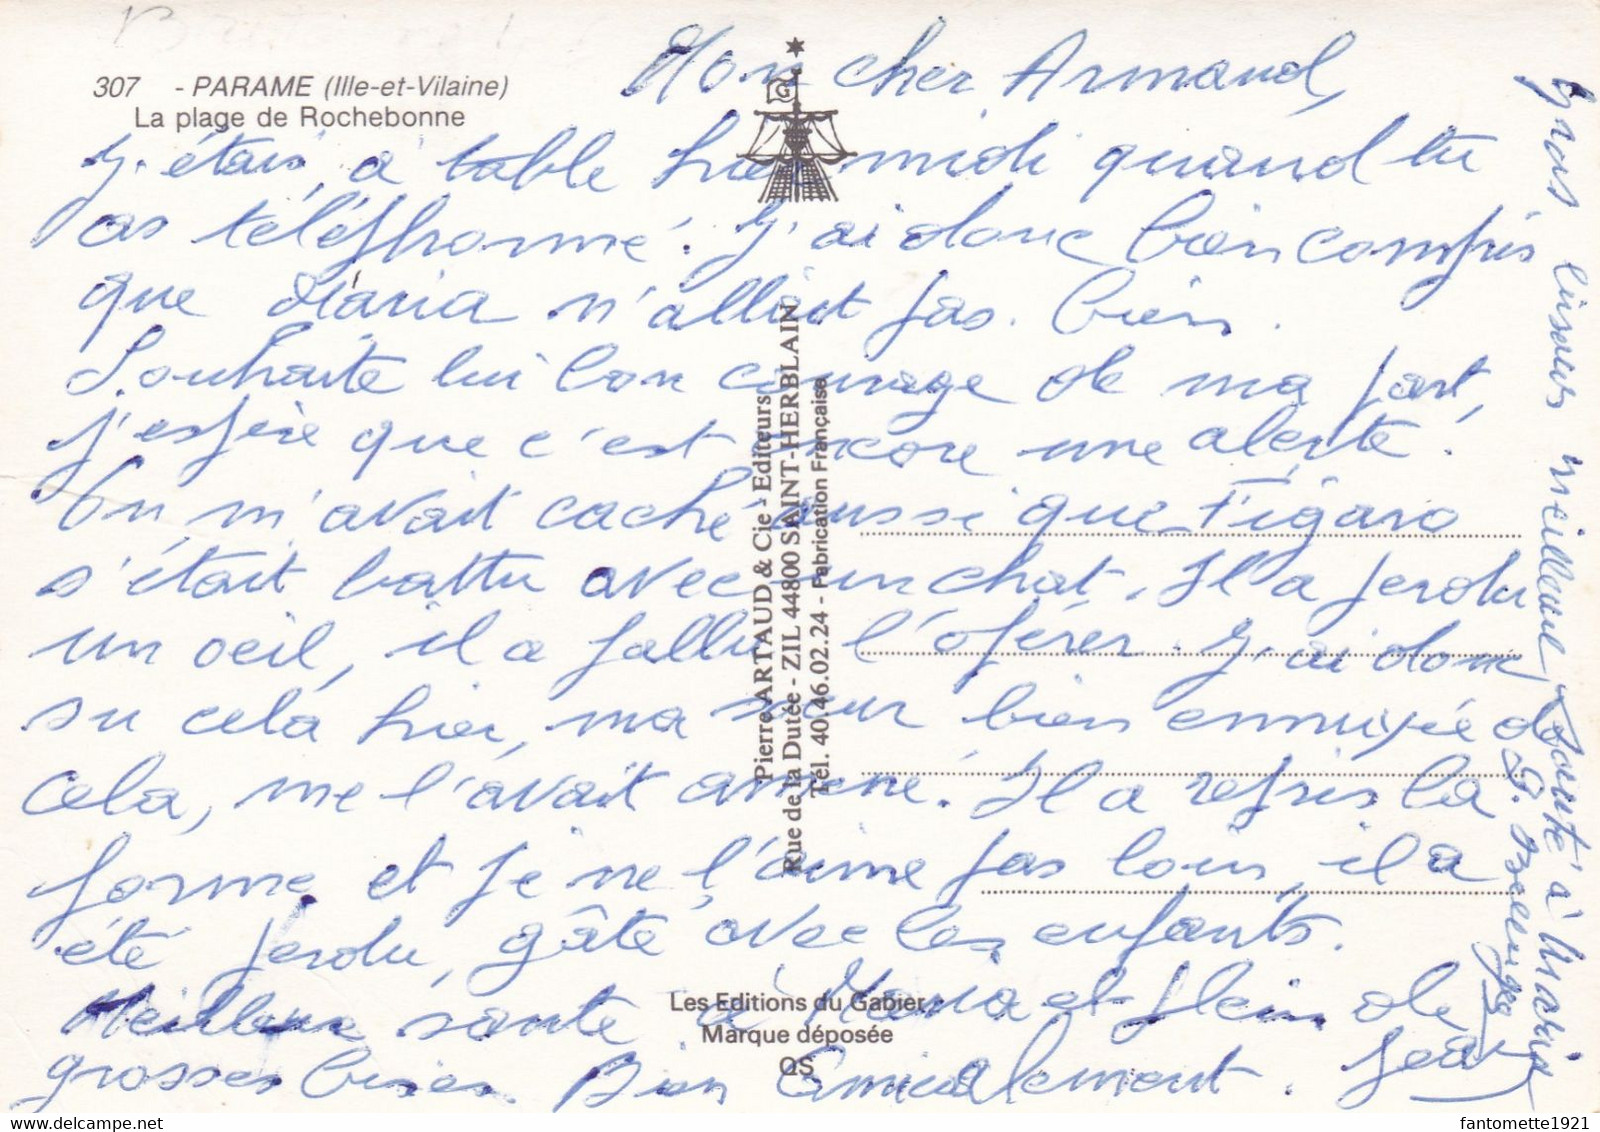 307 - PARAME (Ille-et-Vilaine)
La plage de Rochebonne
Mon cher Armand,
J'étais à table hier midi quand tu
as téléphonné. J'ai donc bien compris
que Maria n'allait pas bien.
Souhaite lui bon courage de ma part,
j'espère que c'est encore une alerte.
On m'avait caché aussi que Figaro
s'était battu avec un chat. Il a perdu
un oeil, il a fallu l'opérer. J'ai donc
su cela hier, ma soeur bien ennuyée de
cela, me l'avait amené. Il a repris la
forme et je ne l'aime pas loin, il a
été perdu, gâté avec les enfants.
Meilleure santé à Maria et plein de
grosses bises. Bien Amicalement. Jean
Gros bisous meilleure santé à Maria
Pierre ARTAUD & Cie - Editeurs
Rue de la Dutée - ZIL 44800 SAINT-HERBLAIN
Tél. 40.46.02.24 - Fabrication Française
G
Les Editions du Gabier
Marque déposée
QS
fantomette1921